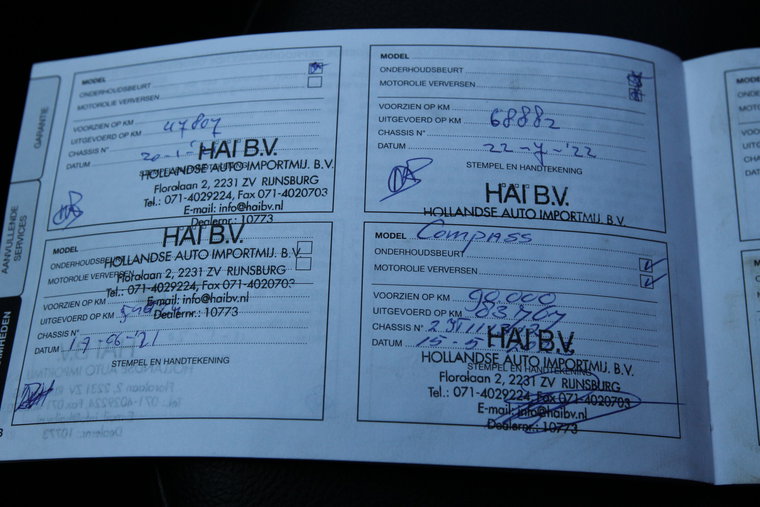 GARANTIE
AANVULLENDE
SERVICES
MODEL
ONDERHOUDSBEURT
MOTOROLIE VERVERSEN
VOORZIEN OP KM
UITGEVOERD OP KM 47807
CHASSIS N°
DATUM 20-1-
HAI B.V.
HOLLANDSE AUTO IMPORTMIJ. B.V.
Floralaan 2, 2231 ZV RIJNSBURG
Tel.: 071-4029224, Fax 071-4020703
E-mail: info@haibv.nl
Dealernr.: 10773
MODEL
ONDERHOUDSBEURT
MOTOROLIE VERVERSEN
VOORZIEN OP KM
UITGEVOERD OP KM
CHASSIS N°
DATUM 17-06-'21
STEMPEL EN HANDTEKENING
HAI B.V.
HOLLANDSE AUTO IMPORTMIJ. B.V.
Floralaan 2, 2231 ZV RIJNSBURG
Tel.: 071-4029224, Fax 071-4020703
E-mail: info@haibv.nl
Dealernr.: 10773
MODEL
ONDERHOUDSBEURT
MOTOROLIE VERVERSEN
VOORZIEN OP KM
UITGEVOERD OP KM 68882
CHASSIS N°
DATUM 22-7-'22
STEMPEL EN HANDTEKENING
HAI B.V.
HOLLANDSE AUTO IMPORTMIJ. B.V.
MODEL Compass
ONDERHOUDSBEURT
MOTOROLIE VERVERSEN
VOORZIEN OP KM 90.000
UITGEVOERD OP KM 83707
CHASSIS N°
DATUM 15-5-
STEMPEL EN HANDTEKENING
HAI B.V.
HOLLANDSE AUTO IMPORTMIJ. B.V.
Floralaan 2, 2231 ZV RIJNSBURG
Tel.: 071-4029224, Fax 071-4020703
E-mail: info@haibv.nl
Dealernr.: 10773